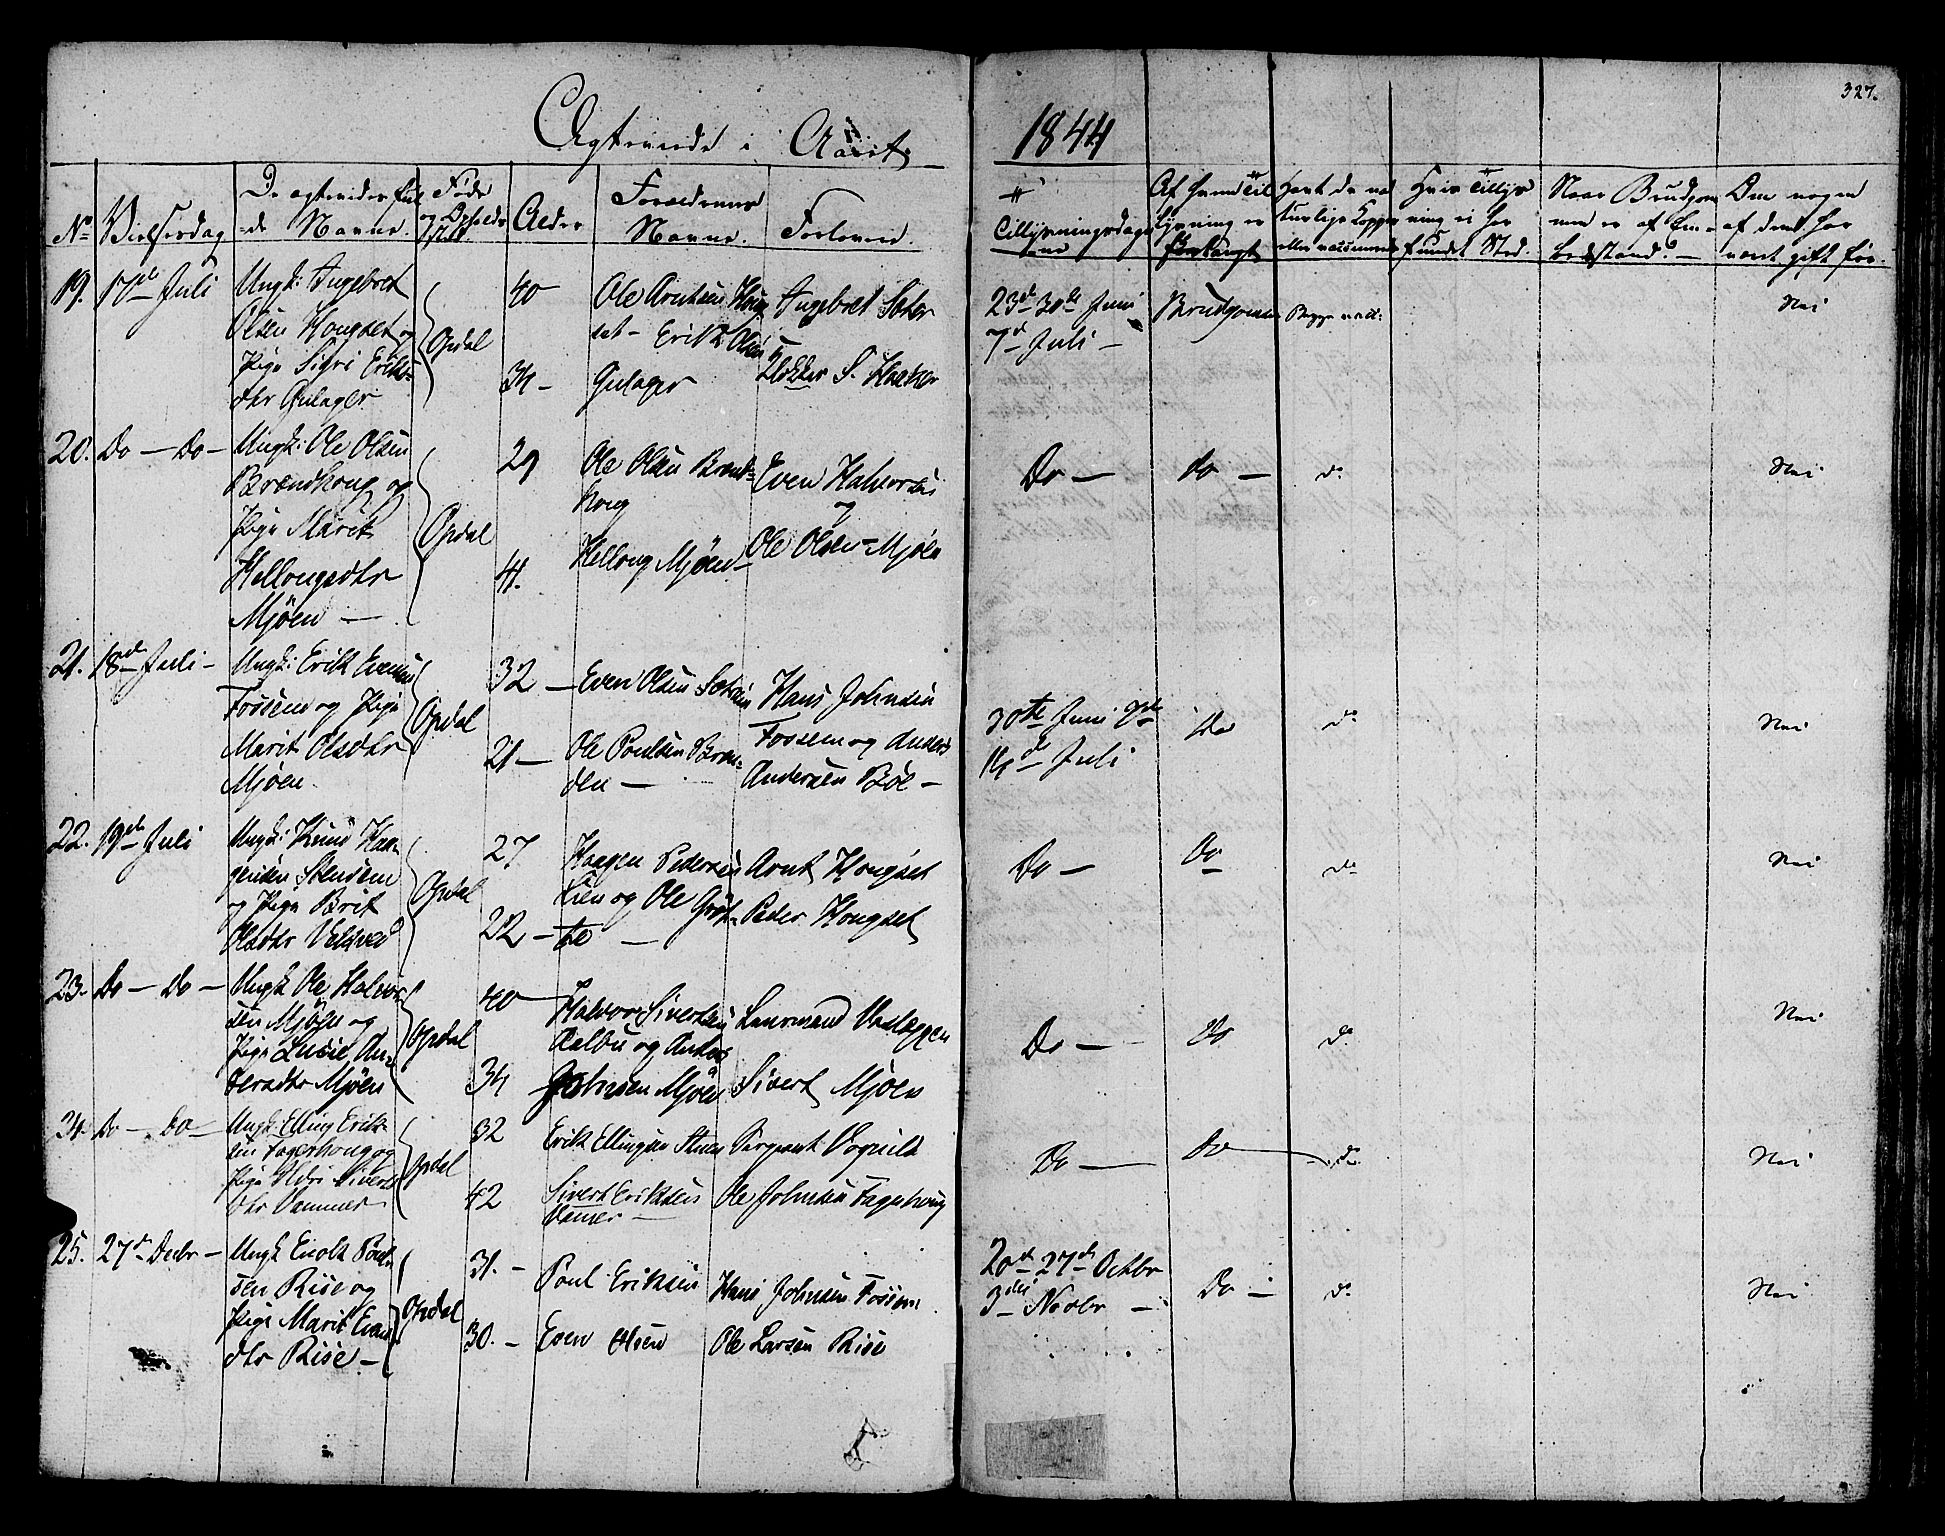 Ægteviede i Aaret
1844
327.
No
Vielsesdag
De ægtevides ful-
de Navne.
Føde
og Opholds
Sted.
Alder
Forældrenes
Navne.
Forlovere.
Tillysningsdage
ne
Af hvem Til
lysning er
forlangt
Havt de na
turlige Kopper
eller vaccinerede
Hvis Tillys
ning ei har
fundet Sted.
Naar Brudgom
men er af Em-
bedsstand? —
Om nogen
af dem har
været gift før.
19. 17de Juli
Ungk: Ingebret
Olsen Hougset og
Pige Sigri Eriks-
dtr Gulager
Opdal
40
34 —
Ole Arntsen Houg
set — Erik Olsen
Gulager
Ingebret Sæter
Klokker S. Hacker
23de 30te Juni
7de Juli —
Brudgommen
Begge vacc:
Nei
20. Do — Do —
Ungk: Ole Olsen
Brændhoug og
Pige Marit
Hellougsdtr
Mjøen —
Opdal
29
41.
Ole Olsen Brænd-
houg
Helloug Mjøen —
Even Halvorsen
og
Ole Olsen Mjøen
Do —
do —
do
Nei
21. 18de Juli —
Ungk: Erik Evensen
Fossem og Pige
Marit Olsdtr
Mjøen.
Opdal
32 —
21 —
Even Olsen Sæter
Ole Poulsen Bræn-
den —
Hans Johnsen
Fossem og Anders
Andersen Bøe —
30te Juni 7de
14de Juli
Do
do
Nei
22. 19de Juli
Ungk: Knud Haa-
gensen Stensem
og Pige Brit
Olsdtr Velsved
Opdal
27
22 —
Haagen Pedersen
Lien og Ole Grøt-
te —
Arnt Hougset
Peder Hougset
Do —
Do
do
Nei
23. Do — Do —
Ungk Ole Halvor
sen Mjøen og
Pige Lusie An-
dersdtr Mjøen
Opdal
40
34
Halvor Sivertsen
Aalbu og Anders
Johnsen Mjøen
Lensmand Vasleggen
Sivert Mjøen
Do —
do
do
Nei
34. Do — Do —
Ungk: Elling Erik-
sen Fagerhoug og
Pige Ildri Siverts
dtr Vammer
Opdal
32
42
Erik Ellingsen Stuen
Sivert Eriksen
Vamer —
Sergeant Vognild
Ole Johnsen Fagerhoug
Do —
Do —
do
Nei
25. 27de Decbr —
Ungk Enok Poul-
sen Rise og
Pige Marit Evens
dtr Rise —
Opdal
31. —
30. —
Poul Eriksen
Even Olsen
Hans Johnsen Fossem
Ole Larsen Rise
20de 27de Octbr
3die Novbr —
Do —
do
Nei